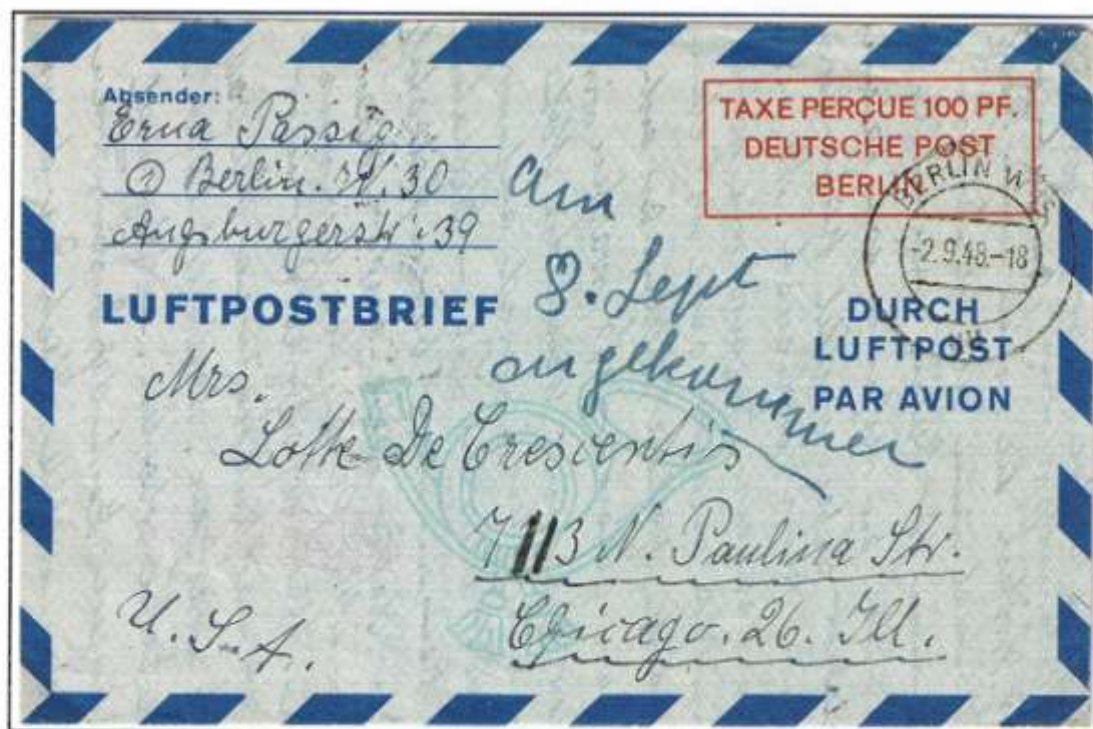 Absender:
Erna Passig
① Berlin. W. 30
Augsburgerstr. 39
TAXE PERÇUE 100 PF.
DEUTSCHE POST
BERLIN
BERLIN W
-2.9.48.-18
am
8. Sept
angekommen
LUFTPOSTBRIEF
DURCH
LUFTPOST
PAR AVION
Mrs.
Lotte De Crescentis
7113 N. Paulina Str.
Chicago. 26. Ill.
U.S.A.